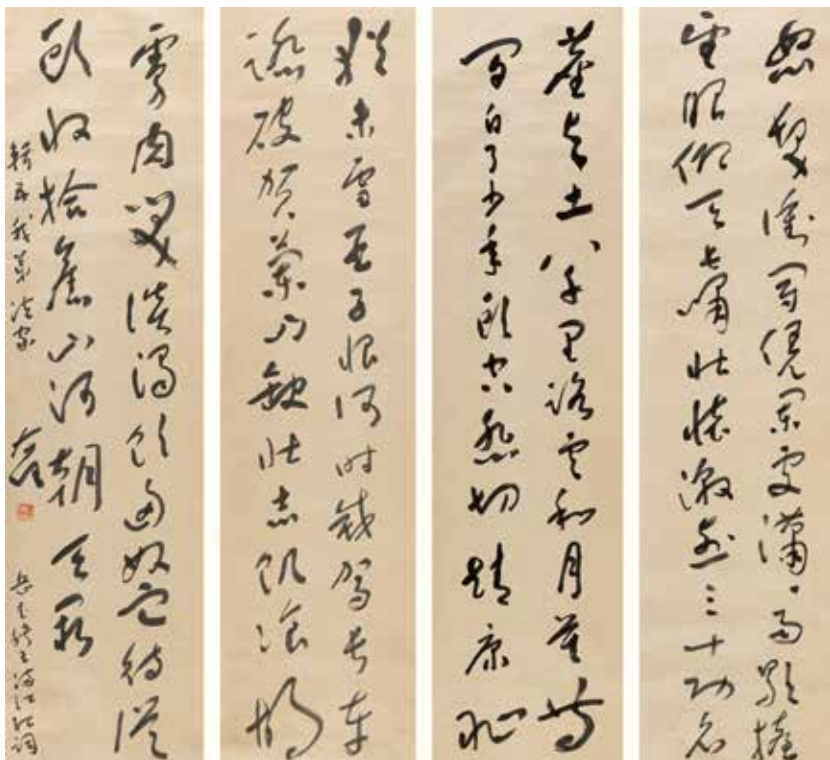 怒髮衝冠憑闌處瀟瀟雨歇擡
望眼仰天長嘯壯懷激烈三十功名
塵與土八千里路雲和月莫等
閒白了少年頭空悲切靖康恥
猶未雪臣子恨何時滅駕長車
踏破賀蘭山缺壯志飢飡胡
虜肉笑談渴飲匈奴血待從
頭收拾舊山河朝天闕
岳武穆王滿江紅詞
我弟法家
右任